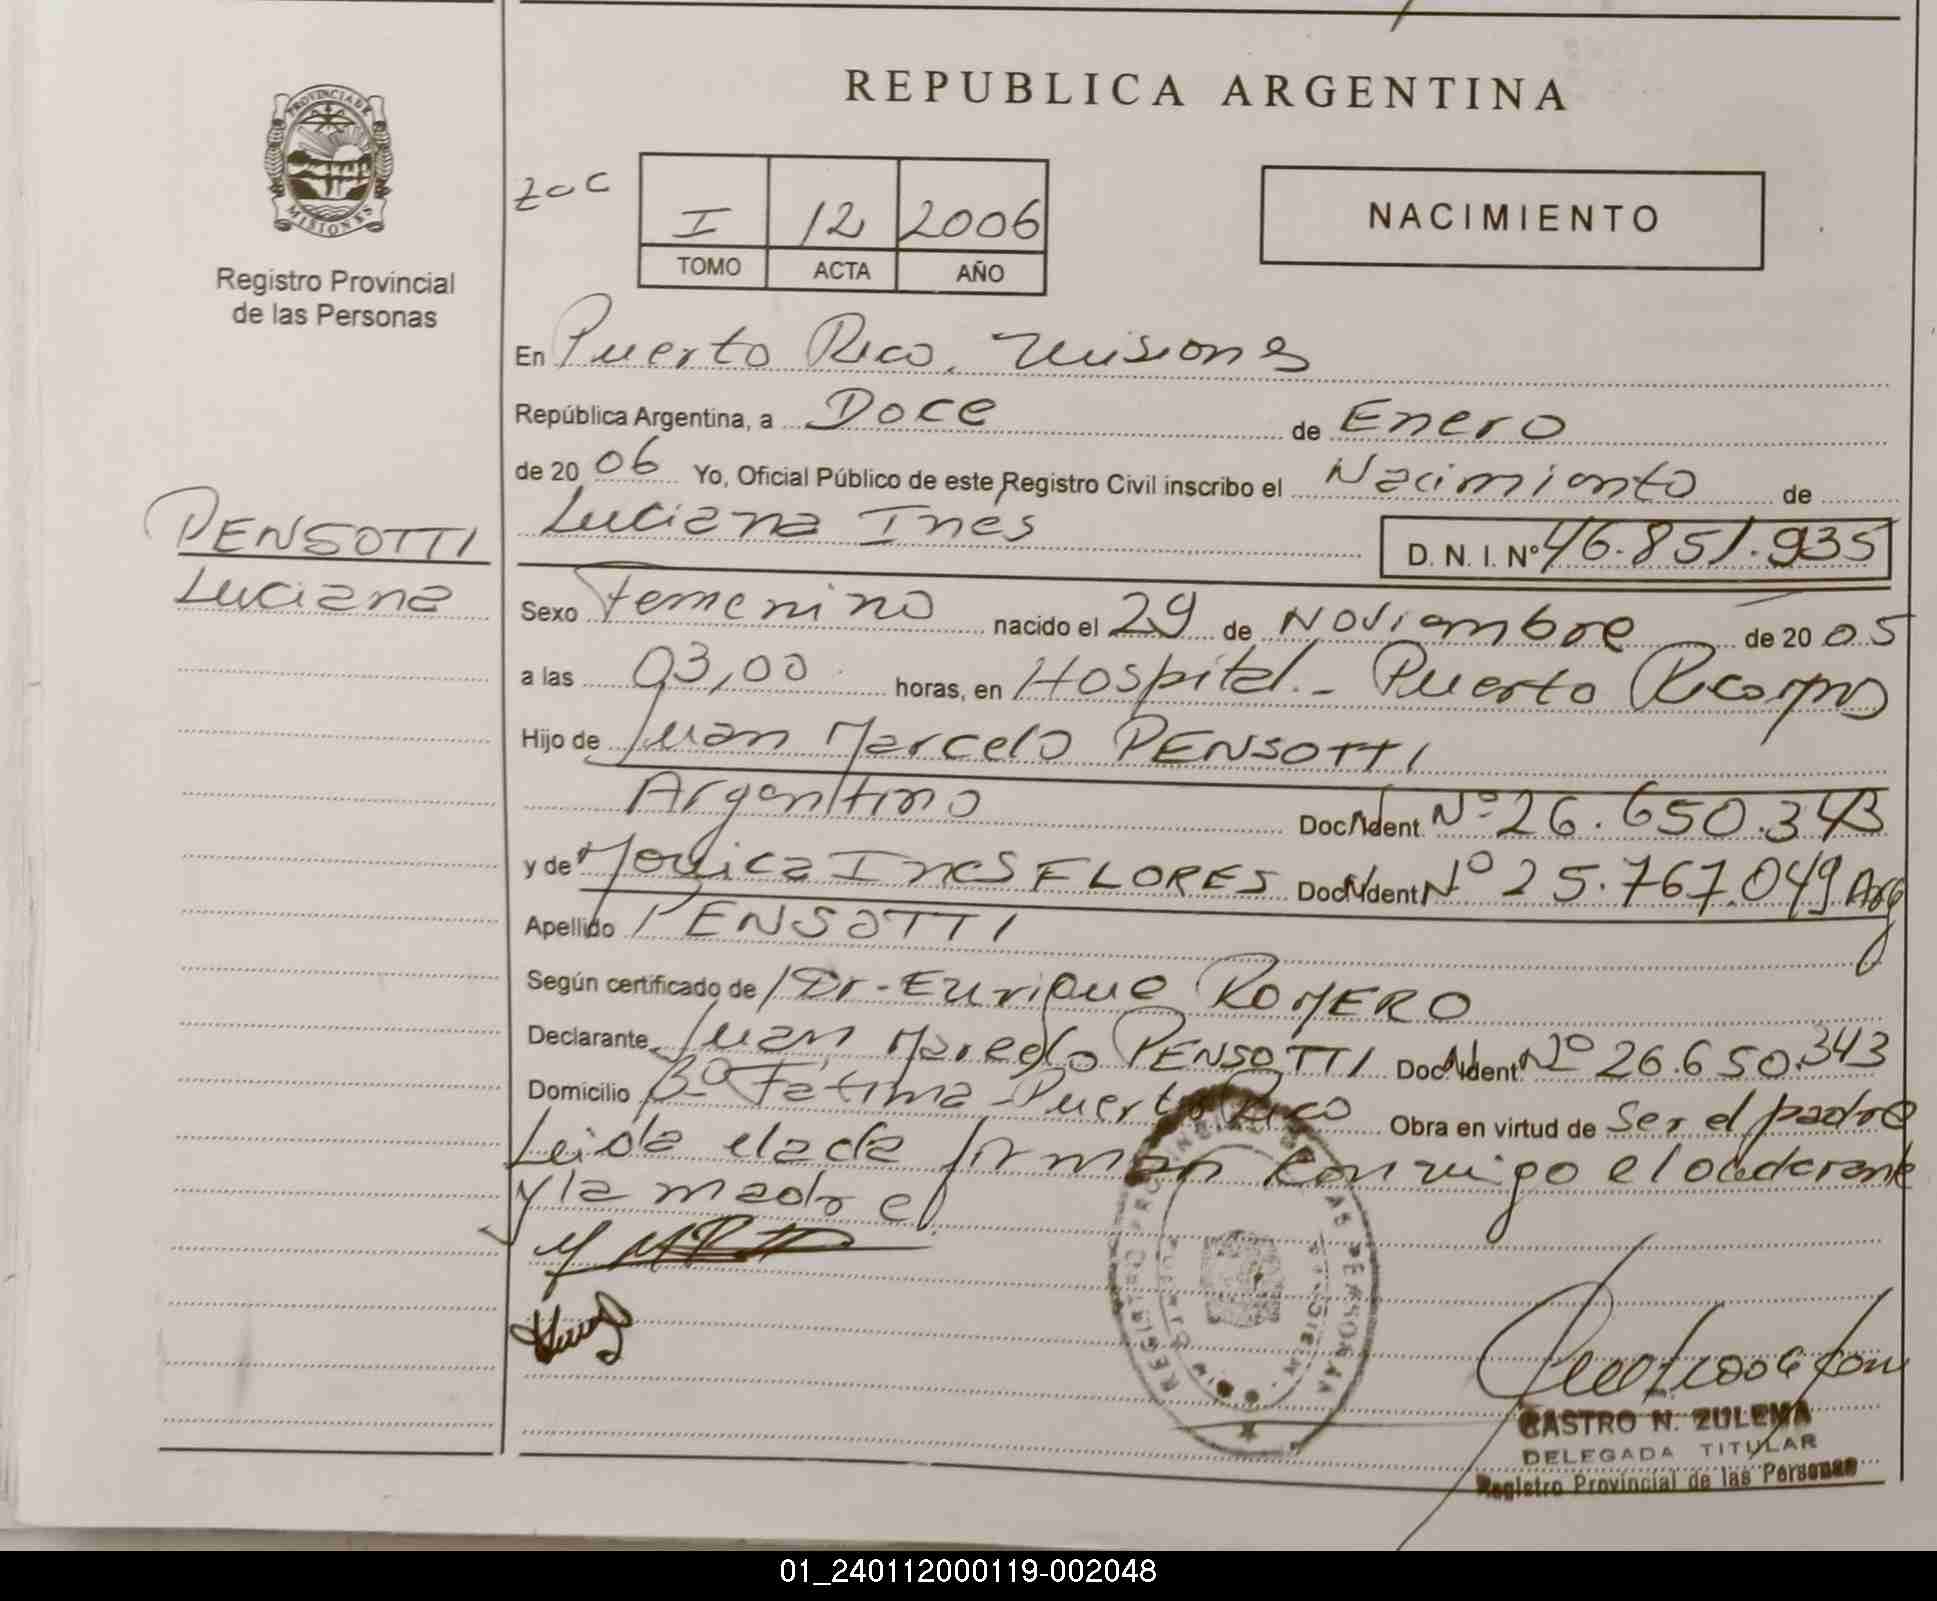 REPUBLICA ARGENTINA
PROVINCIA DE
MISIONES
Registro Provincial
de las Personas
I 12 2006
TOMO ACTA AÑO
NACIMIENTO
En Puerto Rico, Misiones
República Argentina, a Doce de Enero
de 20 06 Yo, Oficial Público de este Registro Civil inscribo el Nacimiento de
PENSOTTI
Luciana
Luciana Inés D. N. I. Nº 46.851.935
Sexo Femenino nacido el 29 de Noviembre de 20 05
a las 03,00 horas, en Hospital - Puerto Rico
Hijo de Juan Marcelo PENSOTTI
Argentino Doc. Ident Nº 26.650.343
y de Monica Ines FLORES Doc. Ident Nº 25.767.049 Arg
Apellido PENSOTTI
Según certificado de Dr - Enrique ROMERO
Declarante Juan Marcelo PENSOTTI Doc. Ident Nº 26.650.343
Domicilio Bº Fátima - Puerto Rico Obra en virtud de Ser el padre
Leida el acta firman conmigo el declarante
y la madre
CASTRO N. ZULEMA
DELEGADA TITULAR
Registro Provincial de las Personas
01_240112000119-002048